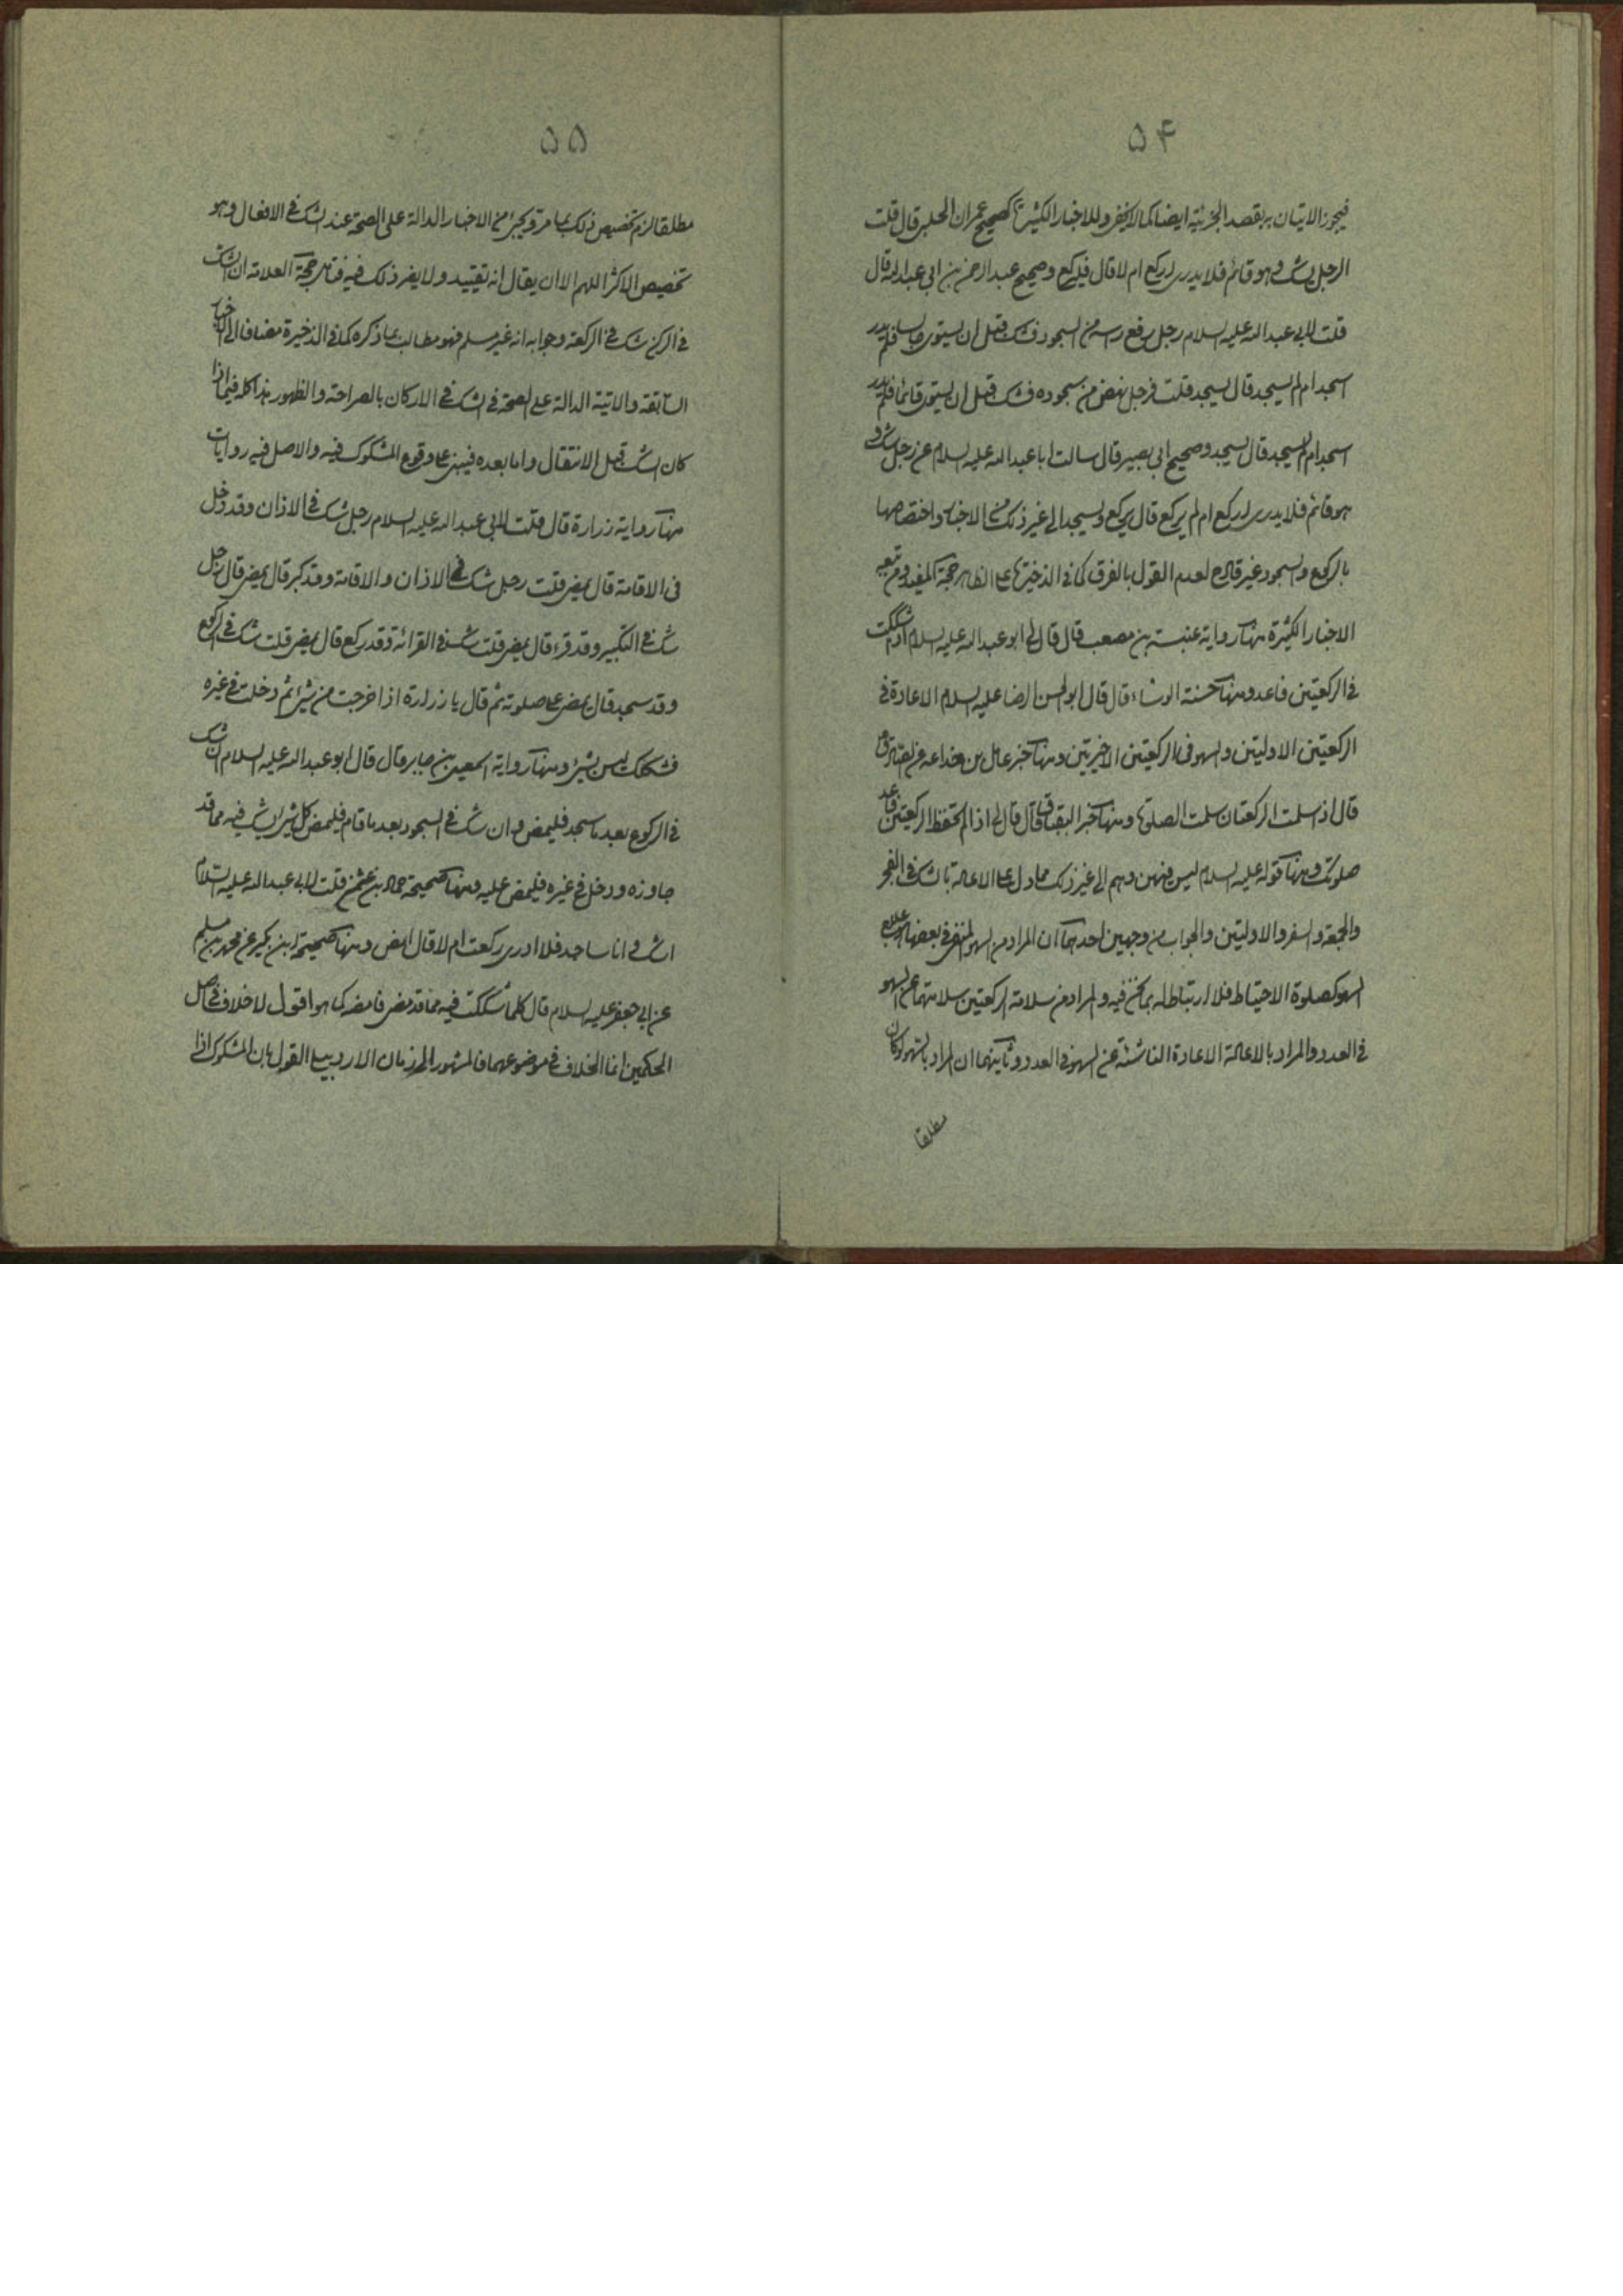 ۵۴
فيجوز الاتيان به بقصد الجزئية ايضا كما لا يخفى وللاخبار الكثيرة كصحيح عمران الحلبي قال قلت
الرجل يشك وهو قائم فلا يدرى اركع ام لا قال فليركع وصحيح عبد الرحمن بن ابى عبد الله قال
قلت لابى عبد الله عليه السلام رجل رفع راسه من السجود فشك قبل ان يستوى جالسا فلم يدر
اسجد ام لم يسجد قال يسجد قلت فرجل نهض من سجوده فشك قبل ان يستوى قائما فلم يدر
اسجد ام لم يسجد قال يسجد وصحيح ابى بصير قال سالت ابا عبد الله عليه السلام عن رجل شك و
هو قائم فلا يدرى اركع ام لم يركع قال يركع ويسجد الى غير ذلك من الاخبار واختصاصها
بالركوع والسجود غير قادح لعدم القول بالفرق كما فى الذخيرة على الظاهر حجة المفيد ومن تبعه
الاخبار الكثيرة منها رواية عنبسة بن مصعب قال قال لى ابو عبد الله عليه السلام اذا شككت
فى الركعتين فاعد ومنها حسنة الوشاء قال قال ابو الحسن الرضا عليه السلام الاعادة فى
الركعتين الاوليتين والسهو فى الركعتين الاخيرتين ومنها خبر
قال اذا سلمت الركعتان سلمت الصلوة ومنها خبر البقباق قال قال لى اذا لم تحفظ الركعتين فاعد
صلوتك ومنها قوله عليه السلام ليس فيهن وهم الى غير ذلك مما دل على الاعادة بالشك فى الفجر
والجمعة والسفر والاوليتين والجواب من وجهين احدهما ان المراد من السهو المنفى فى بعضها
السهو كصلوة الاحتياط فلا ارتباط له بما نحن فيه والمراد من سلامة الركعتين سلامتهما عن السهو
فى العدد والمراد بالاعادة الاعادة الناشئة عن السهو فى العدد وثانيهما ان المراد بالسهو لو كان
مطلقا
۵۵
مطلقا لزم تخصيص ذلك بما مر ويجىء من الاخبار الدالة على الصحة عند الشك فى الافعال وهو
تخصيص الاكثر اللهم الا ان يقال انه تقييد ولا يضر ذلك فيه فتامل حجة العلامة ان الشك
فى الركن شك فى الركعة وجوابه انه غير مسلم فهو مطالب بما ذكره كما فى الذخيرة مضافا الى الاخبار
السابقة والاتية الدالة على الصحة فى الشك فى الاركان بالصراحة والظهور هذا كله فيما اذا
كان الشك قبل الانتقال واما بعده فيبنى على وقوع المشكوك فيه والاصل فيه روايات
منها رواية زرارة قال قلت لابى عبد الله عليه السلام رجل شك فى الاذان وقد دخل
فى الاقامة قال يمضى قلت رجل شك فى الاذان والاقامة وقد كبر قال يمضى قال رجل
شك فى التكبير وقد قرء قال يمضى قلت شك فى القرائة وقد ركع قال يمضى قلت شك فى الركوع
وقد سجد قال يمضى على صلوته ثم قال يا زرارة اذا خرجت من شىء ثم دخلت فى غيره
فشكك ليس بشىء ومنها رواية اسمعيل بن جابر قال قال ابو عبد الله عليه السلام ان شك
فى الركوع بعد ما سجد فليمض وان شك فى السجود بعد ما قام فليمض كل شىء شك فيه مما قد
جاوزه ودخل فى غيره فليمض عليه ومنها صحيحة حماد بن عثمن قلت لابى عبد الله عليه السلام
اشك وانا ساجد فلا ادرى ركعت ام لا قال امض ومنها صحيحة ابن بكير عن محمد بن مسلم
عن ابى جعفر عليه السلام قال كلما شككت فيه مما قد مضى فامضه كما هو اقول لا خلاف فى اصل
الحكمين انما الخلاف فى موضوعهما فالمشهور الى زمان الاردبيلى القول بان المشكوك اذا